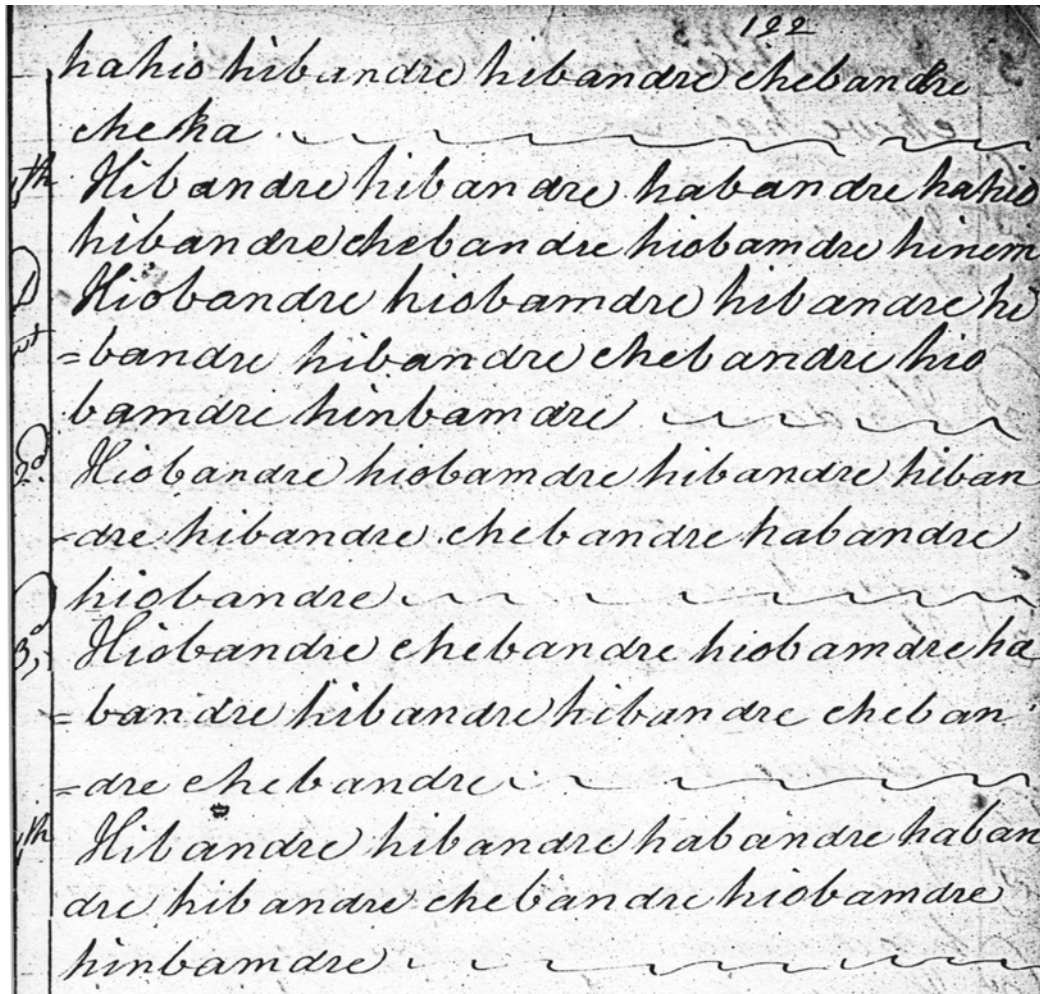 122
hahio hibandre hibandre chebandre
cheha
th Hibandre hibandre habandre hahio
hibandre chebandre hiobamdre hinem
Hiobandre hiobamdre hibandre hi
=bandre hibandre chebandre hio
bamdre hinbamdre
2d Hiobandre hiobamdre hibandre hiban
-dre hibandre chebandre habandre
hiobandre
3d Hiobandre chebandre hiobamdre ha
=bandre hibandre hibandre cheban
=dre chebandre
th Hibandre hibandre habandre haban
dre hibandre chebandre hiobamdre
hinbamdre